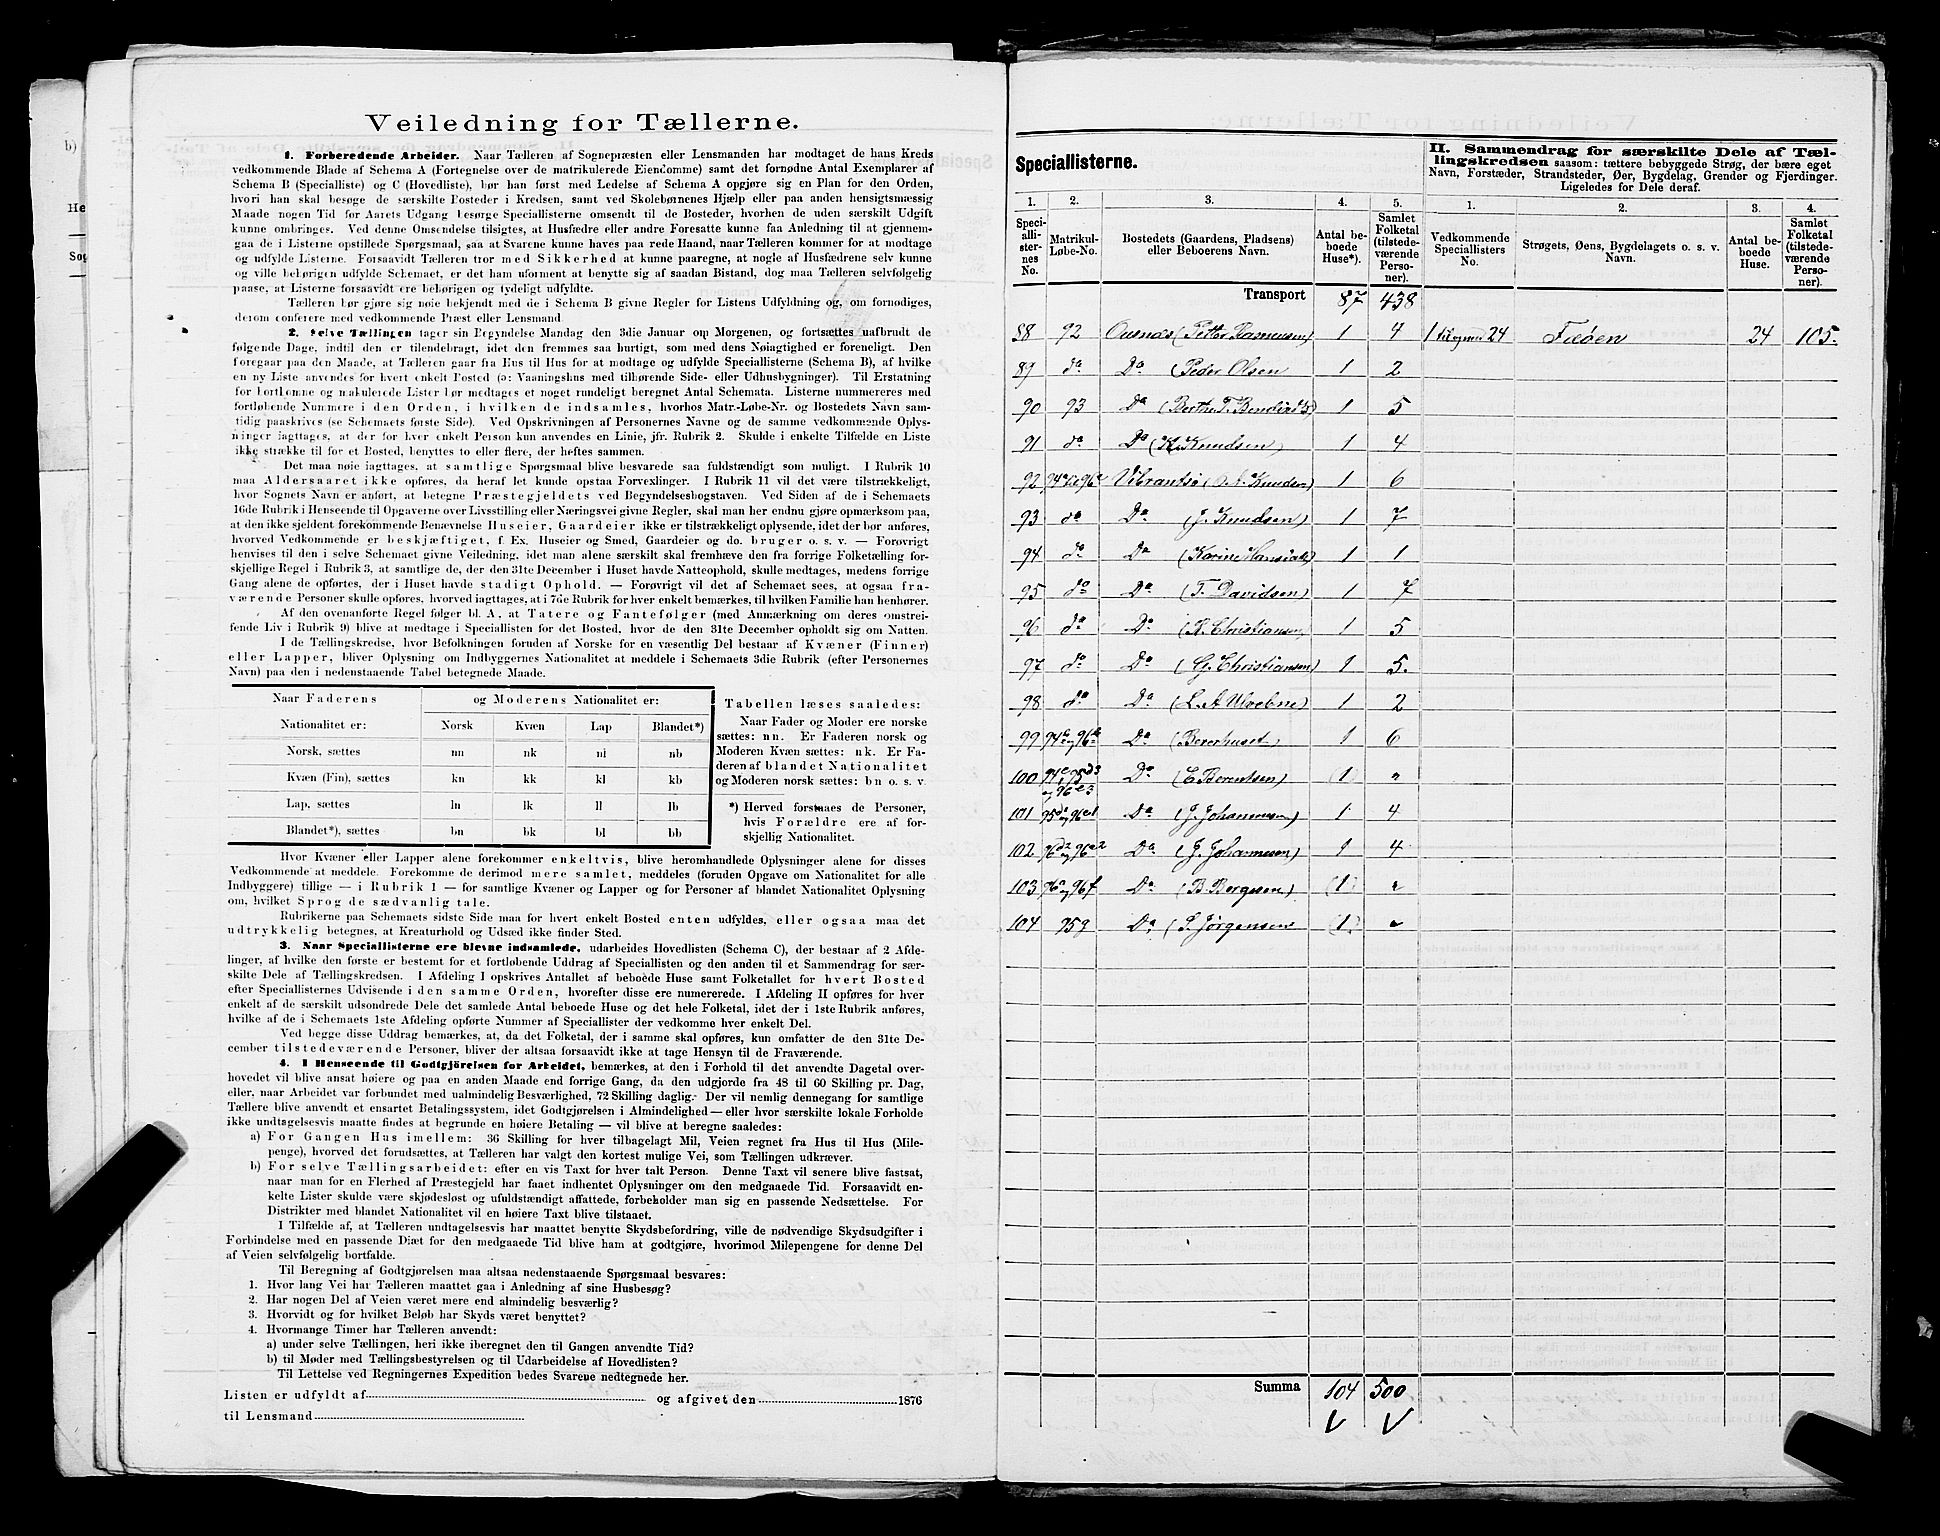 b)
He
Sog
Veiledning for Tællerne.
1. Forberedende Arbeider. Naar Tælleren af Sognepræsten eller Lensmanden har modtaget de hans Kreds
vedkommende Blade af Schema A (Fortegnelse over de matrikulerede Eiendomme) samt det fornødne Antal Exemplarer af
Schema B (Specialliste) og C (Hovedliste), bør han først med Ledelse af Schema A opgjøre sig en Plan for den Orden,
hvori han skal besøge de særskilte Bosteder i Kredsen, samt ved Skolebørnenes Hjælp eller paa anden hensigtsmæssig
Maade nogen Tid for Aarets Udgang besørge Speciallisterne omsendt til de Bosteder, hvorhen de uden særskilt Udgift
kunne ombringes. Ved denne Omsendelse tilsigtes, at Husfædre eller andre Foresatte kunne faa Anledning til at gjennem-
gaa de i Listerne opstillede Spørgsmaal, saa at Svarene kunne haves paa rede Haand, naar Tælleren kommer for at modtage
og udfylde Listerne. Forsaavidt Tælleren tror med Sikkerhed at kunne paaregne, at nogle af Husfædrene selv kunne
og ville behørigen udfylde Schemaet, er det ham uforment at benytte sig af saadan Bistand, dog maa Tælleren selvfølgelig
paase, at Listerne forsaavidt ere behørigen og tydeligt udfyldte.
Tælleren bør gjøre sig nøie bekjendt med de i Schema B givne Regler for Listens Udfyldning og, om fornødiges,
derom conferere med vedkommende Præst eller Lensmand.
2. Selve Tællingen tager sin Begyndelse Mandag den 3die Januar om Morgenen, og fortsættes uafbrudt de
følgende Dage, indtil den er tilendebragt, idet den fremmes saa hurtigt, som med dens Nøiagtighed er foreneligt. Den
foregaar paa den Maade, at Tælleren gaar fra Hus til Hus for at modtage og udfylde Speciallisterne (Schema B), af hvilke
en ny Liste anvendes for hvert enkelt Bosted (ɔ: Vaaningshus med tilhørende Side- eller Udhusbygninger). Til Erstatning
for bortkomne og makulerede Lister bør medtages et noget rundeligt beregnet Antal Schemata. Listerne nummereres med
fortløbende Nummere i den Orden, i hvilken de indsamles, hvorhos Matr.-Løbe-Nr. og Bostedets Navn sam-
tidig paaskrives (se Schemaets første Side). Ved Opskrivningen af Personernes Navne og de samme vedkommende Oplys-
ninger iagttages, at der for hver enkelt Person kun anvendes en Linie, jfr. Rubrik 2. Skulde i enkelte Tilfælde en Liste
ikke strække til for et Bosted, benyttes to eller flere, der heftes sammen.
Det maa nøie iagttages, at samtlige Spørgsmaal blive besvarede saa fuldstændigt som muligt. I Rubrik 10
maa Aldersaaret ikke opføres, da heraf let kunde opstaa Forvexlinger. I Rubrik 11 vil det være tilstrækkeligt,
hvor Sognets Navn er anført, at betegne Præstegjeldets ved Begyndelsesbogstaven. Ved Siden af de i Schemaets
16de Rubrik i Henseende til Opgaverne over Livsstilling eller Næringsvei givne Regler, skal man her endnu gjøre opmærksom paa,
at den ikke sjeldent forekommende Benævnelse Huseier, Gaardeier ikke er tilstrækkeligt oplysende, idet der bør anføres,
hvorved Vedkommende er beskjæftiget, f. Ex. Huseier og Smed, Gaardeier og do. bruger o. s. v. — Forøvrigt
henvises til den i selve Schemaet givne Veiledning, idet man alene særskilt skal fremhæve den fra forrige Folketælling for-
skjellige Regel i Rubrik 3, at samtlige de, der den 31te December i Huset havde Natteophold, skulle medtages, medens forrige
Gang alene de opførtes, der i Huset havde stadigt Ophold. — Forøvrigt vil det af Schemaet sees, at ogsaa fra-
værende Personer skulle opføres, hvorved iagttages, at i 7de Rubrik for hver enkelt bemærkes, til hvilken Familie han henhører.
Af den ovenanførte Regel følger bl. A., at Tatere og Fantefølger (med Anmærkning om deres omstrei-
fende Liv i Rubrik 9) blive at medtage i Speciallisten for det Bosted, hvor de den 31te December opholdt sig om Natten.
I de Tællingskredse, hvor Befolkningen foruden af Norske for en væsentlig Del bestaar af Kvæner (Finner)
eller Lapper, bliver Oplysning om Indbyggernes Nationalitet at meddele i Schemaets 3die Rubrik (efter Personernes
Navn) paa den i nedenstaaende Tabel betegnede Maade.
Naar Faderens og Moderens Nationalitet er:
Nationalitet er: Norsk Kvæn Lap Blandet*)
Norsk, sættes nn nk nl nb
Kvæn (Fin), sættes kn kk kl kb
Lap, sættes ln lk ll lb
Blandet*), sættes bn bk bl bb
Tabellen læses saaledes:
Naar Fader og Moder ere norske
sættes: nn. Er Faderen norsk og
Moderen Kvæn sættes: nk. Er Fa-
deren af blandet Nationalitet
og Moderen norsk sættes: bn o. s. v.
*) Herved forstaaes de Personer,
hvis Forældre ere af for-
skjellig Nationalitet.
Hvor Kvæner eller Lapper alene forekommer enkeltvis, blive heromhandlede Oplysninger alene for disses
Vedkommende at meddele. Forekomme de derimod mere samlet, meddeles (foruden Opgave om Nationalitet for alle
Indbyggere) tillige — i Rubrik 1 — for samtlige Kvæner og Lapper og for Personer af blandet Nationalitet Oplysning
om, hvilket Sprog de sædvanlig tale.
Rubrikerne paa Schemaets sidste Side maa for hvert enkelt Bosted enten udfyldes, eller ogsaa maa det
udtrykkelig betegnes, at Kreaturhold og Udsæd ikke finder Sted.
3. Naar Speciallisterne ere blevne indsamlede, udarbeides Hovedlisten (Schema C), der bestaar af 2 Afde-
linger, af hvilke den første er bestemt for et fortløbende Uddrag af Speciallisten og den anden til et Sammendrag for sær-
skilte Dele af Tællingskredsen. I Afdeling I opskrives Antallet af beboede Huse samt Folketallet for hvert Bosted
efter Speciallisternes Udvisende i den samme Orden, hvorefter disse ere numererede. I Afdeling II opføres for hver
enkelt af de særskilt udsondrede Dele det samlede Antal beboede Huse og det hele Folketal, idet der i 1ste Rubrik anføres,
hvilke af de i Schemaets 1ste Afdeling opførte Nummer af Speciallister der vedkomme hver enkelt Del.
Ved begge disse Uddrag bemærkes, at, da det Folketal, der i samme skal opføres, kun omfatter de den 31te De-
cember tilstedeværende Personer, bliver der altsaa forsaavidt ikke at tage Hensyn til de Fraværende.
4. I Henseende til Godtgjörelsen for Arbeidet, bemærkes, at den i Forhold til det anvendte Dagetal over-
hovedet vil blive ansat høiere og paa en anden Maade end forrige Gang, da den udgjorde fra 48 til 60 Skilling pr. Dag,
eller, naar Arbeidet var forbundet med ualmindelig Besværlighed, 72 Skilling daglig. Der vil nemlig dennegang for samtlige
Tællere blive anvendt et ensartet Betalingssystem, idet Godtgjörelsen i Almindelighed — eller hvor særskilte lokale Forholde
ikke undtagelsesvis maatte findes at begrunde en høiere Betaling — vil blive at beregne saaledes:
a) For Gangen Hus imellem: 36 Skilling for hver tilbagelagt Mil, Veien regnet fra Hus til Hus (Mile-
penge), hvorved det forudsættes, at Tælleren har valgt den kortest mulige Vei, som Tællingen udkræver.
b) For selve Tællingsarbeidet: efter en vis Taxt for hver talt Person. Denne Taxt vil senere blive fastsat,
naar man for en Flerhed af Præstegjeld har faaet indhentet Oplysninger om den medgaaede Tid. Forsaavidt en-
kelte Lister skulde være skjødesløst og ufuldstændigt affattede, forbeholder man sig en passende Nedsættelse. For
Distrikter med blandet Nationalitet vil en høiere Taxt blive tilstaaet.
I Tilfælde af, at Tælleren undtagelsesvis har maattet benytte Skydsbefordring, ville de nødvendige Skydsudgifter i
Forbindelse med en passende Diæt for den medgaaede Tid blive ham at godtgjøre, hvorimod Milepengene for denne Del
af Veien selvfølgelig bortfalde.
Til Beregning af Godtgjörelsen maa altsaa nedenstaaende Spørgsmaal besvares:
1. Hvor lang Vei har Tælleren maattet gaa i Anledning af sine Husbesøg?
2. Har nogen Del af Veien været mere end almindelig besværlig?
3. Hvorvidt og for hvilket Beløb har Skyds været benyttet?
4. Hvormange Timer har Tælleren anvendt:
a) under selve Tællingen, heri ikke iberegnet den til Gangen anvendte Tid?
b) til Møder med Tællingsbestyrelsen og til Udarbeidelse af Hovedlisten?
Til Lettelse ved Regningernes Expedition bedes Svarene nedtegnede her.
Listen er udfyldt af og afgivet den 1876
til Lensmand
Speciallisterne.
1. 2. 3. 4. 5.
Speci-
alli-
ster-
nes
No.
Matrikul-
Løbe-No.
Bostedets (Gaardens, Pladsens)
eller Beboerens Navn.
Antal be-
boede
Huse*).
Samlet
Folketal
(tilstede-
værende
Perso-
ner).
II. Sammendrag for særskilte Dele af Tæl-
lingskredsen saasom: tættere bebyggede Strøg, der bære eget
Navn, Forstæder, Strandsteder, Øer, Bygdelag, Grender og Fjerdinger.
Ligeledes for Dele deraf.
1. 2. 3. 4.
Vedkommende
Speciallisters
No.
Strøgets, Øens, Bygdelagets o. s. v.
Navn.
Antal be-
boede
Huse.
Samlet
Folketal
(tilstede-
værende
Perso-
ner).
Transport 87 438
88 92 Ousnæs (Petter Rasmussen) 1 4 1 til og med 24 Fæøen 24 105.
89 do Do (Peder Olsen 1 2
90 93 Do (Berthe T. 1 5
91 do Do (K. Knudsen) 1 4
92 Vibrantsø ( Knudsen) 1 6
93 do Do (J. Knudsen) 1 7
94 do Do (Karine 1 1
95 do Do (T. Davidsen) 1 7
96 do Do (K. Christiansen 1 5
97 do Do (G. Christiansen) 1 5.
98 do Do (L. A. 1 2
99 Do 1 6
100 Do (C Berentsen) (1) "
101 Do (J. Johannesen) 1 4
102 Do (J. Johannesen) 1 4
103 Do (B. Børgesen) (1) "
104 95g Do (S. Jørgensen (1) "
Summa 104 500